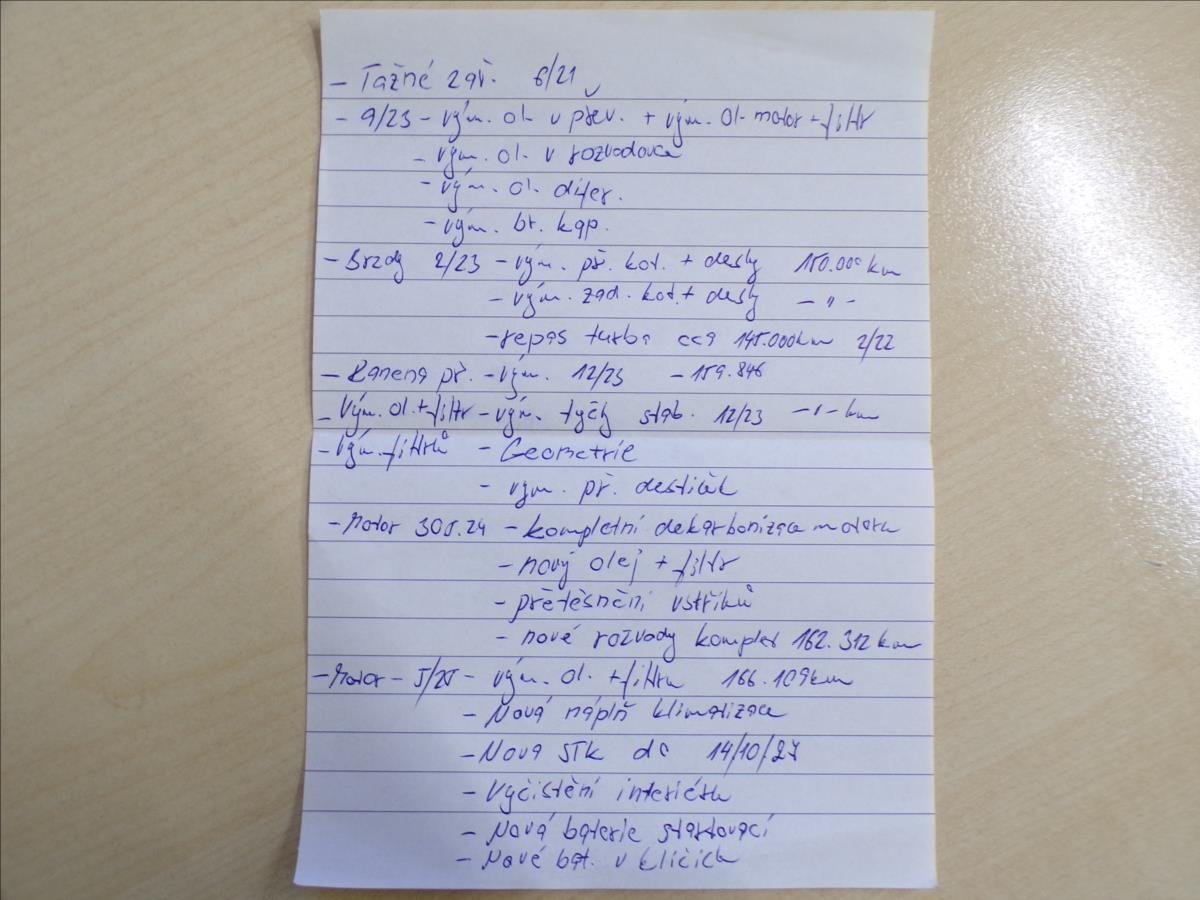 - Tažné zař. 6/21
- 9/23 - vým. ol. v přev. + vým. ol. motor + filtr
- vým. ol. v rozvodovce
- vým. ol. difer.
- vým. br. kap.
- Brzdy 2/23 - vým. př. kot. + desky 150.000 km
- vým. zad. kot. + desky - " -
- repas turba cca 145.000km 2/22
- Ramena př. - vým. 12/23 - 159.846
- Vým. ol. + filtr - vým. tyčky stab. 12/23 - " - km
- Vým. filtrů - Geometrie
- vým. př. destiček
- Motor 30.5.24 - kompletní dekarbonizace motoru
- nový olej + filtr
- přetěsnění vstřiků
- nové rozvody komplet 162.312 km
- Motor - 5/25 - vým. ol. + filtru 166.109 km
- Nová náplň klimatizace
- Nová STK do 14/10/27
- Vyčistění interiéru
- Nová baterie startovací
- Nové bat. v klíčích